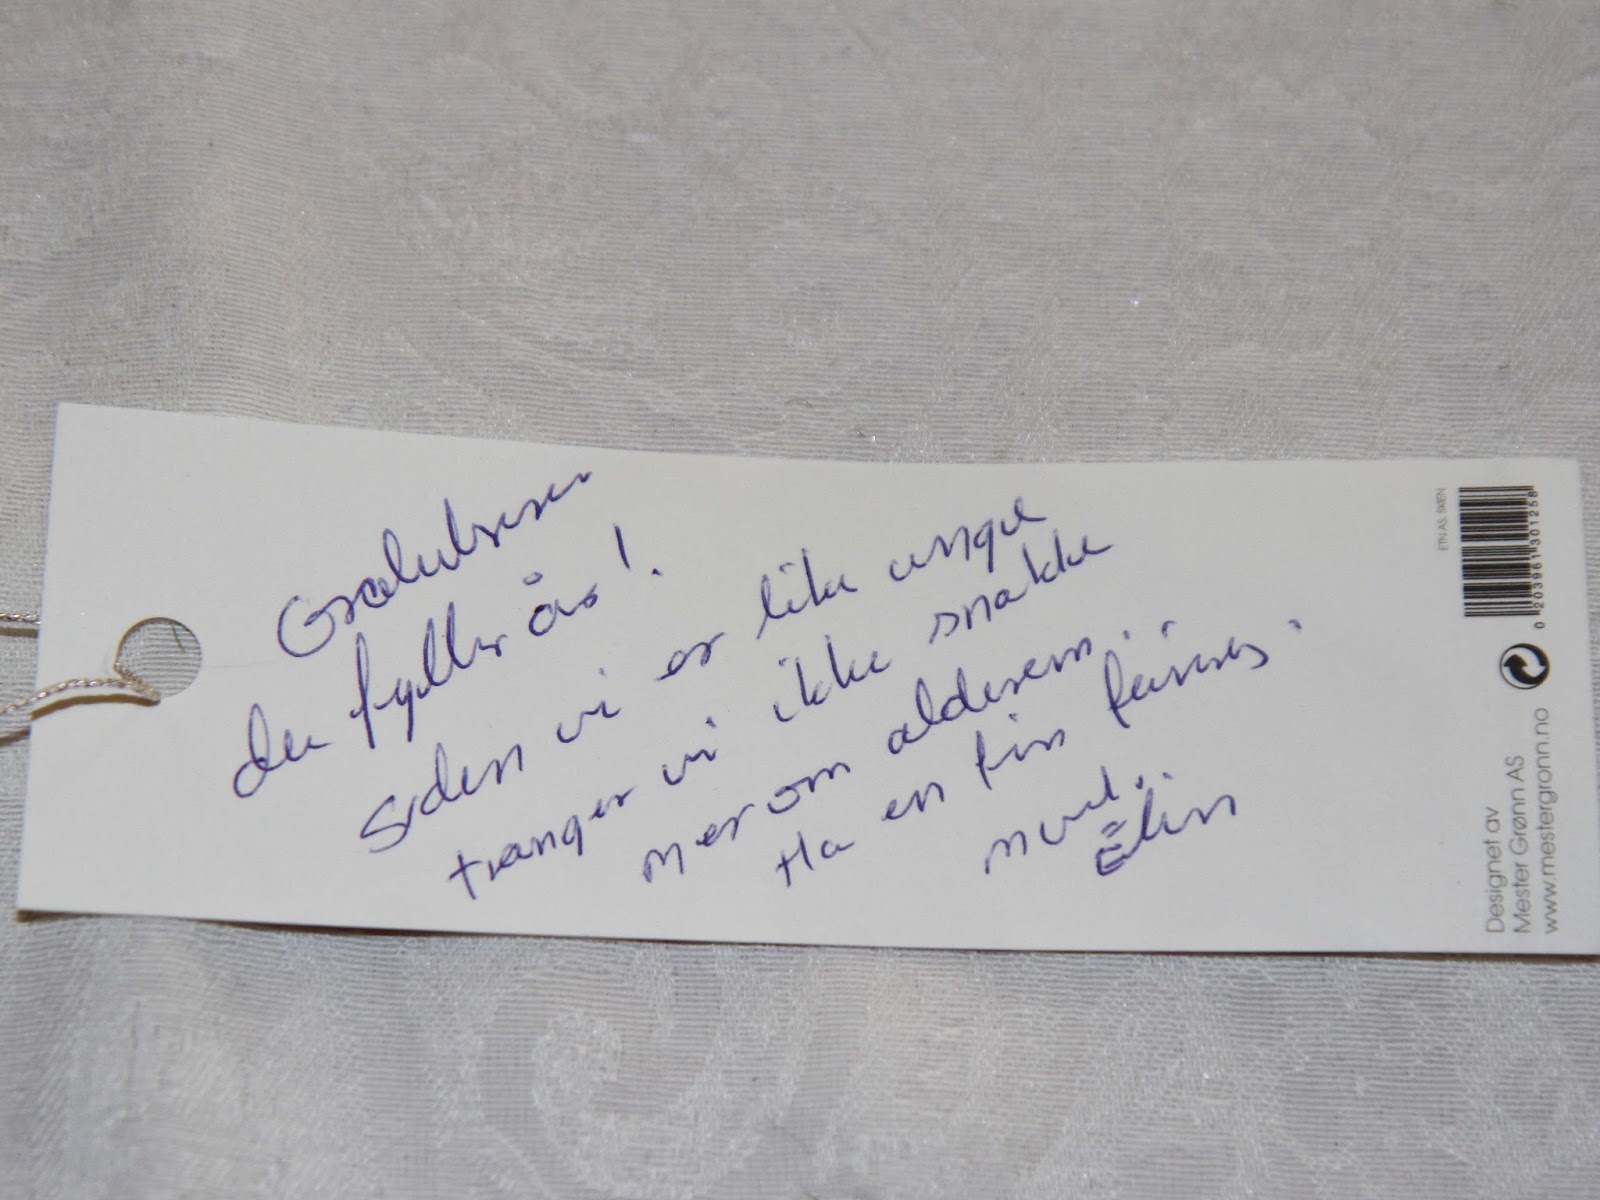 Gratulerer
du fyller år!
Siden vi er like unge
trenger vi ikke snakke
mer om alderen.
Ha en fin feiring.
Elin
ETN AS, SKIEN
0 203961 301258
Designet av
Mester Grønn AS
www.mestergronn.no